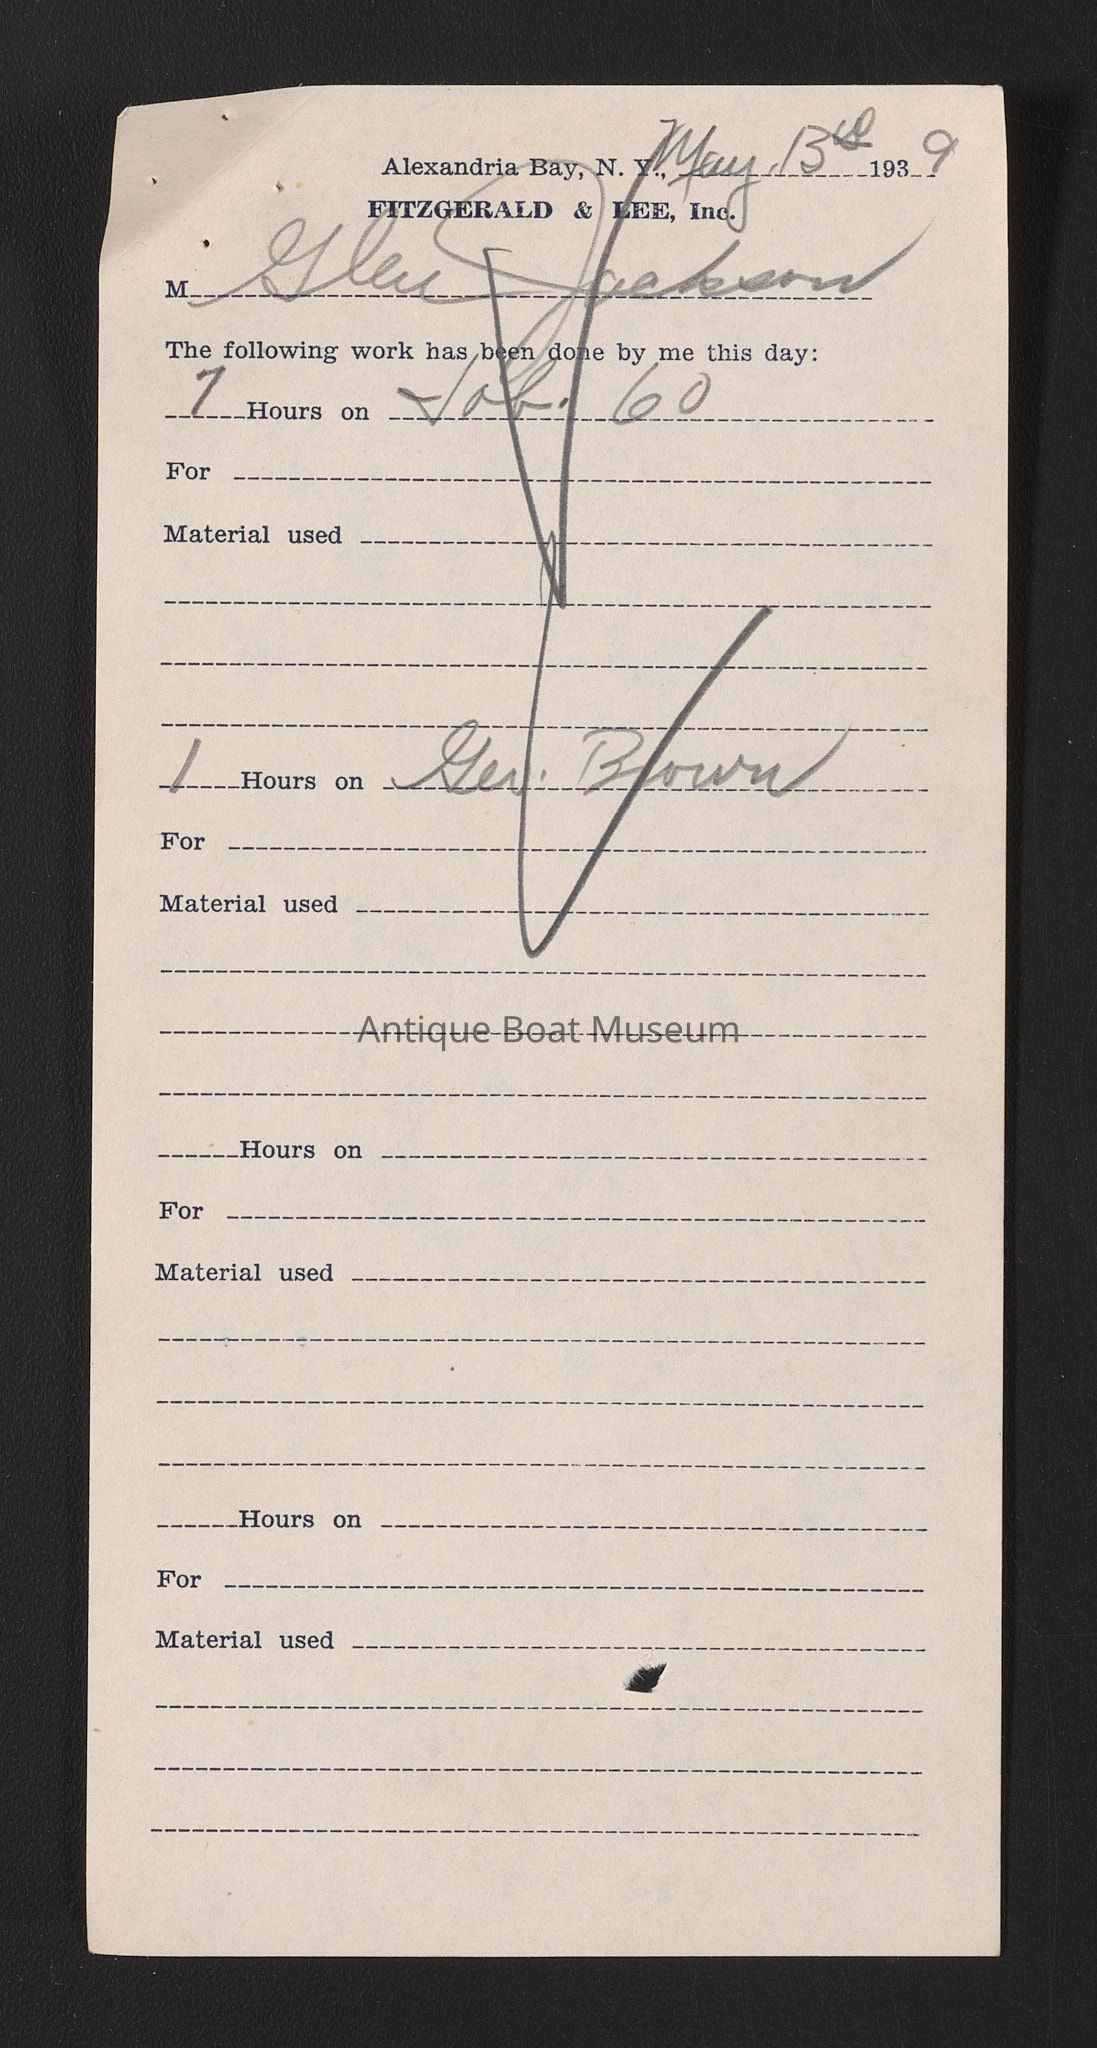 Alexandria Bay, N. Y., May. 13th 1939
FITZGERALD & LEE, Inc.
M Glen Jackson
The following work has been done by me this day:
7 Hours on Job. 60
For
Material used
1 Hours on Geo. Brown
For
Material used
Antique Boat Museum
Hours on
For
Material used
Hours on
For
Material used